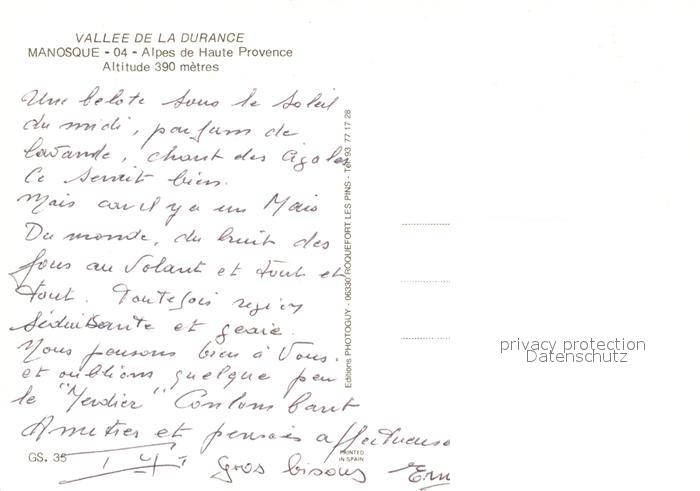 VALLEE DE LA DURANCE
MANOSQUE - 04 - Alpes de Haute Provence
Altitude 390 mètres
Une belote sous le soleil
du midi, parfum de
lavande, chant des cigales
Ce serait bien.
Mais car il y a un Mais
Du monde, du bruit des
fous au volant et tout et
tout. Toutefois region
séduisante et
Nous pensons bien à Vous.
et oublions quelque peu
le
Amitiés et pensées affectueuse
Gros bisous
GS. 35
PRINTED
IN SPAIN
Editions PHOTOGUY - 06330 ROQUEFORT LES PINS - Tél. 93 77 17 28
privacy protection
Datenschutz